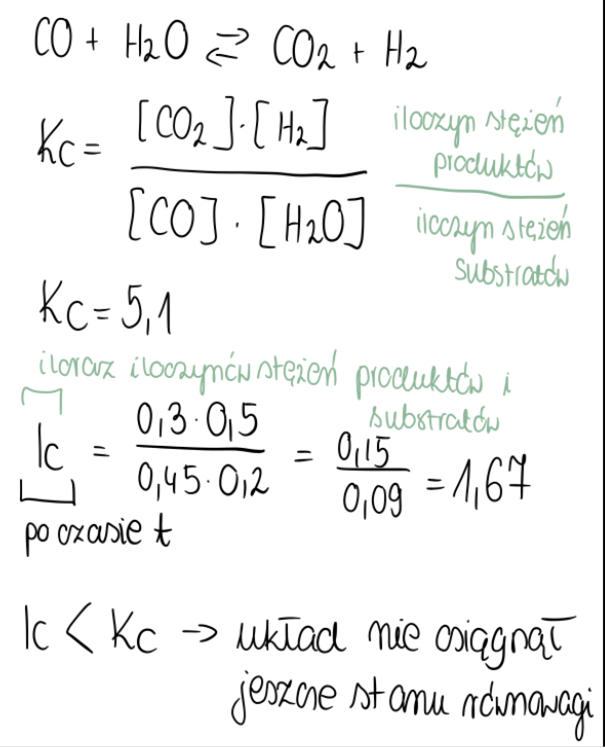 CO + H₂O ⇌ CO₂ + H₂
Kc = [CO₂]·[H₂] / [CO]·[H₂O]
iloczyn stężeń
produktów
iloczyn stężeń
substratów
Kc = 5,1
iloraz iloczynów stężeń produktów i
substratów
Ic = 0,3·0,5 / 0,45·0,2 = 0,15 / 0,09 = 1,67
po czasie t
Ic < Kc → układ nie osiągnął
jeszcze stanu równowagi